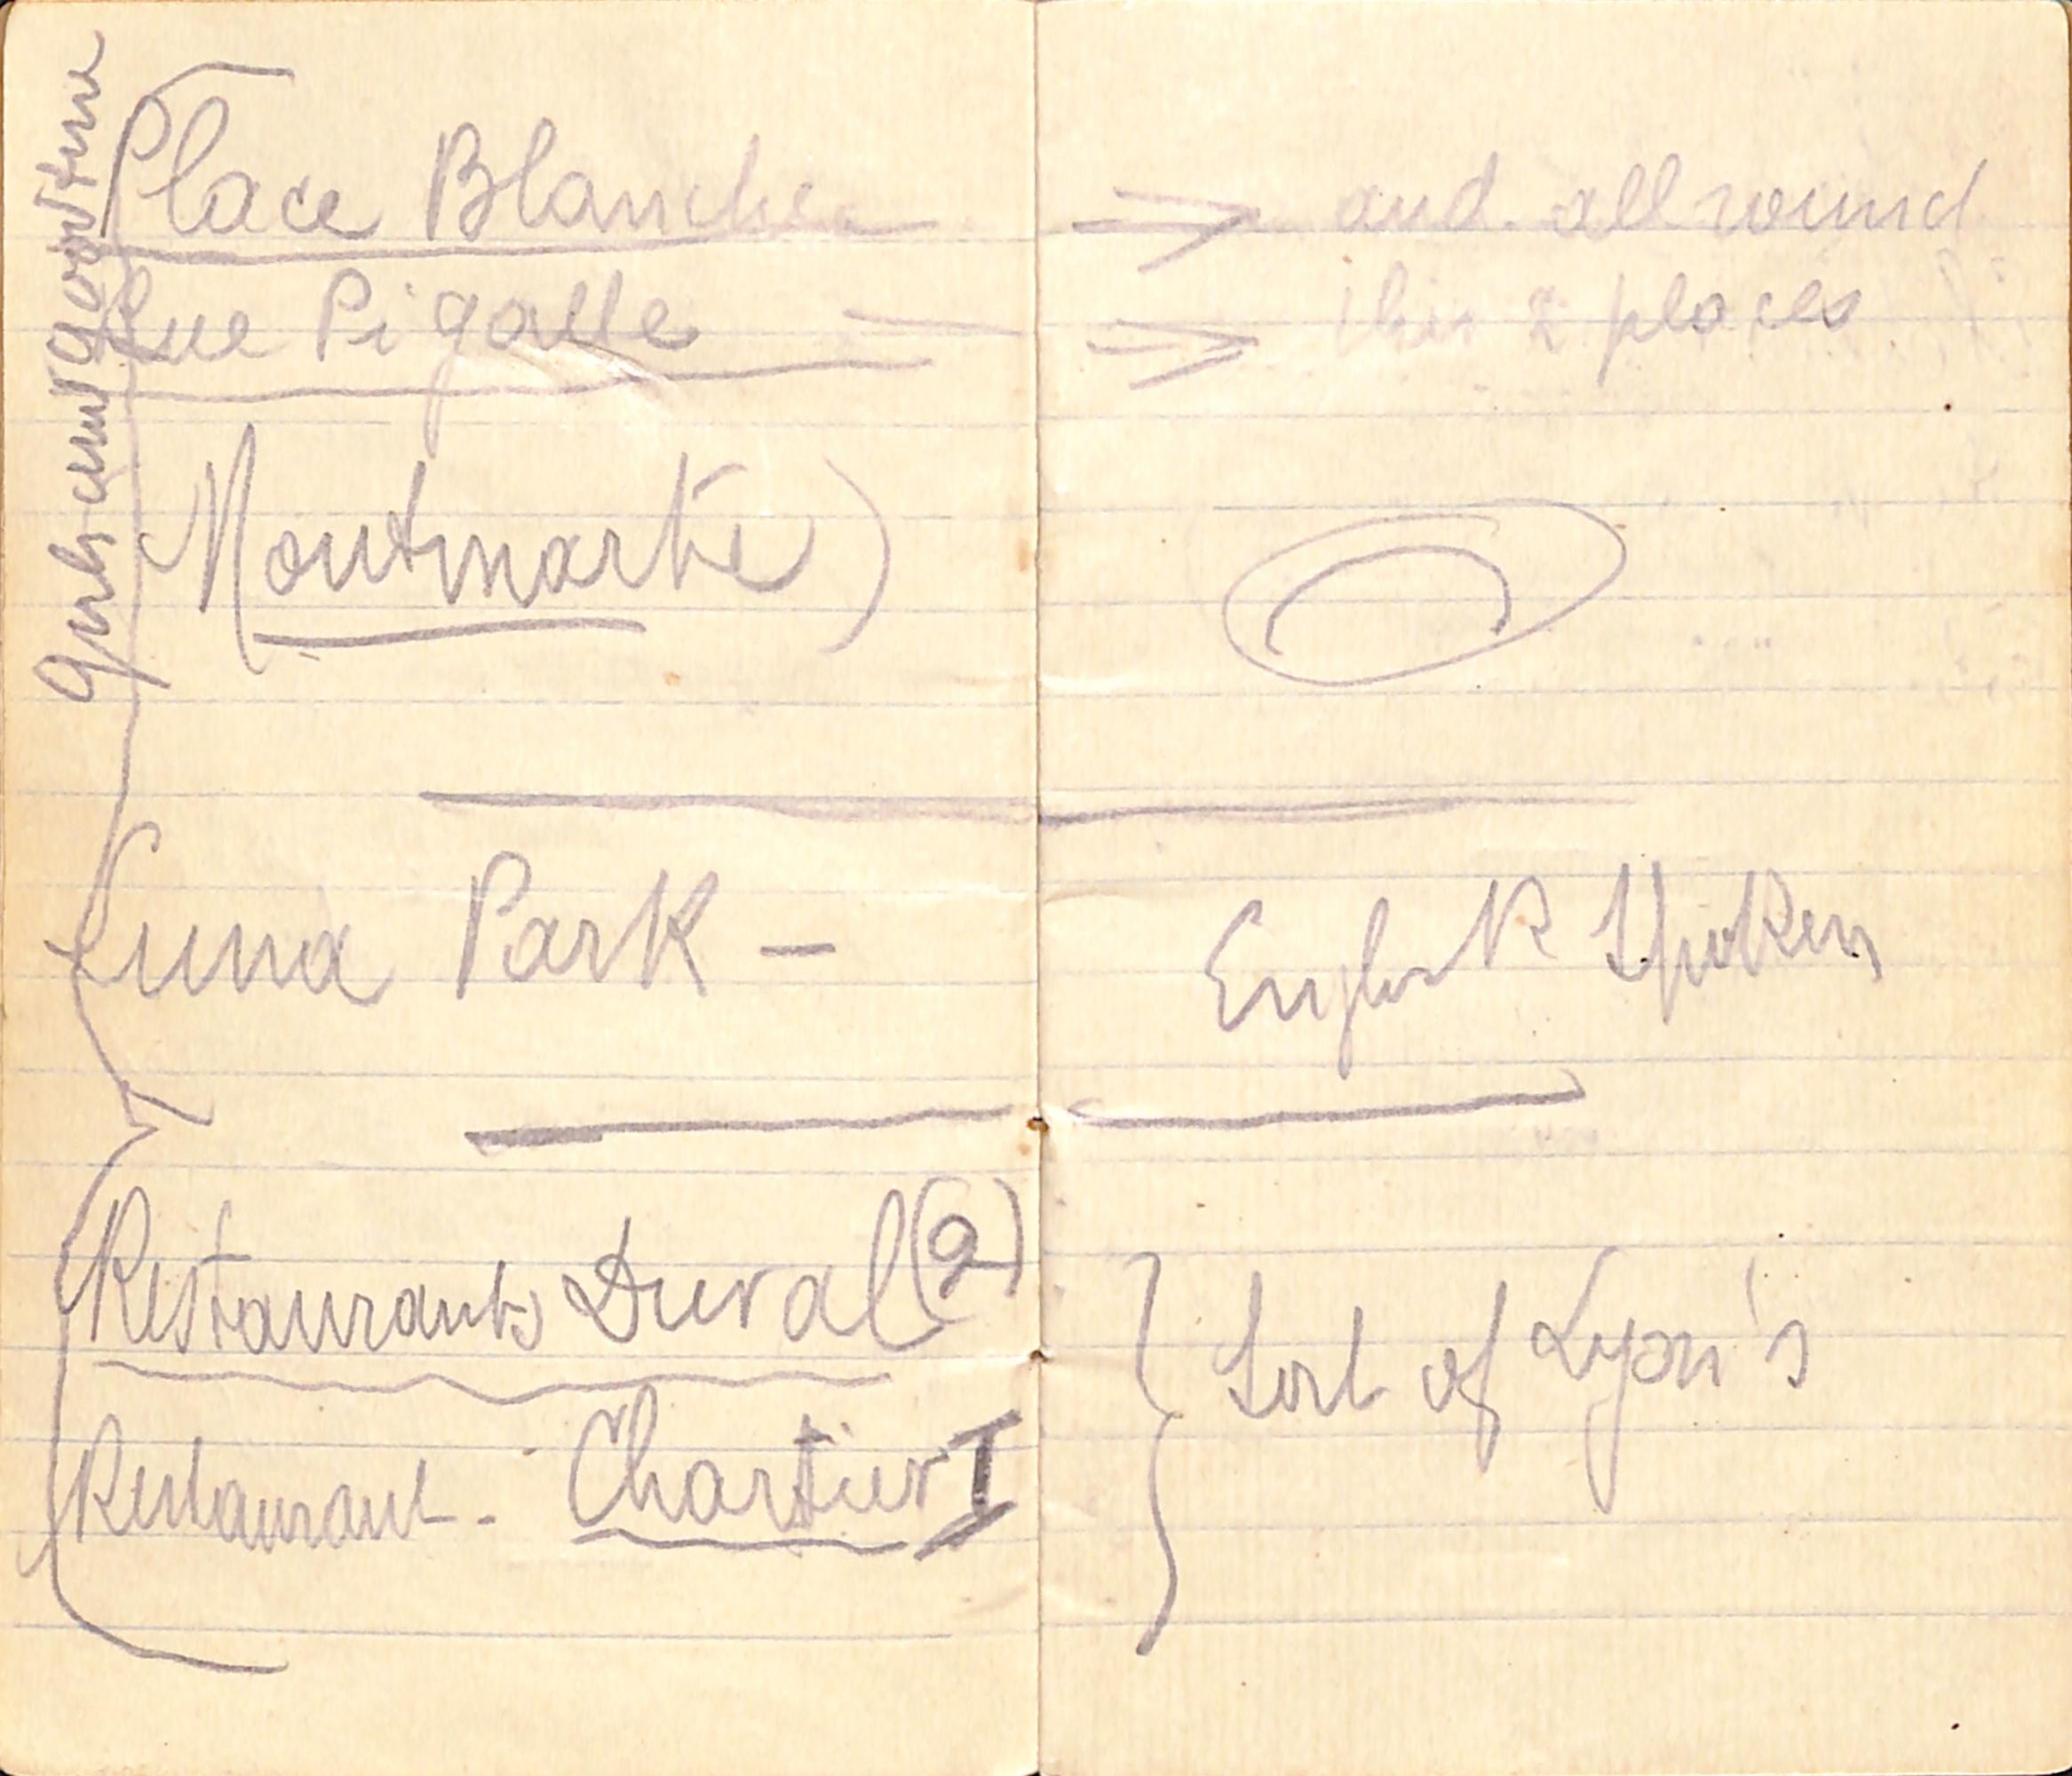 Place Blanche
and all round
Rue Pigalle
this 2 places
(Montmartre)
Luna Park -
English Spoken
Restaurants Duval (2)
Sort of Lyon's
Restaurant - Chartier I
good time